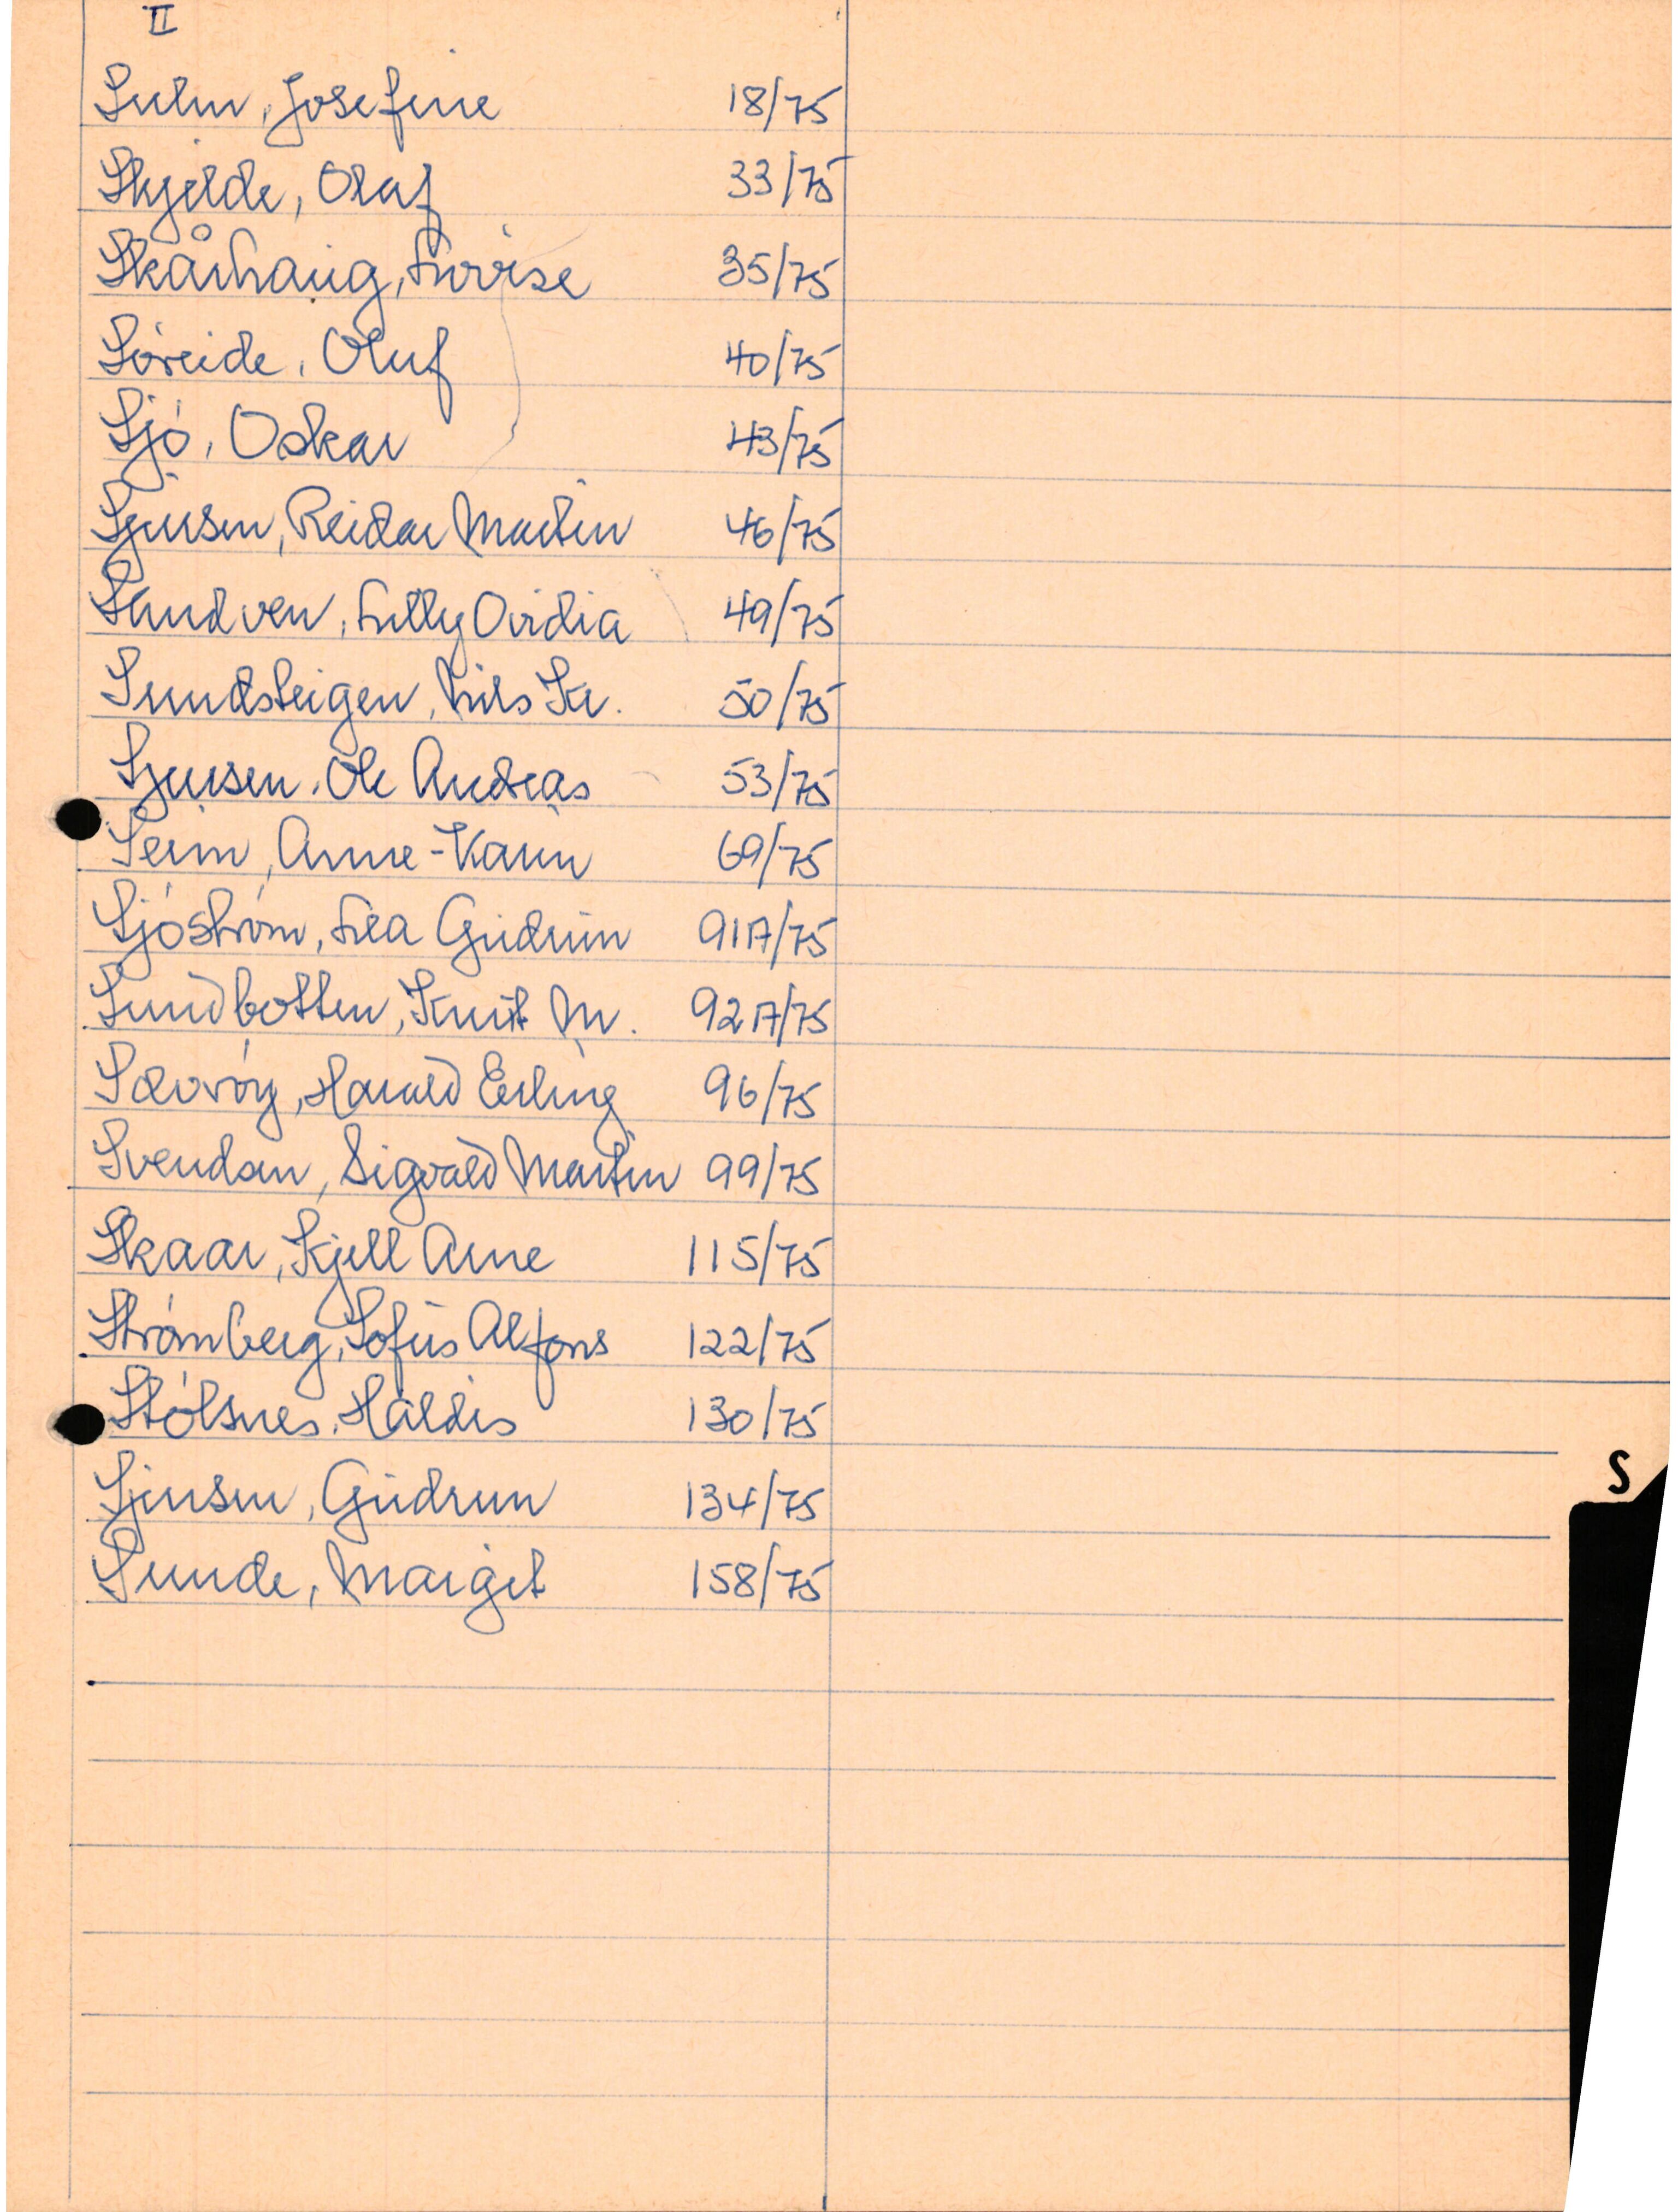 II
Sulen, Josefine 18/75
Skjelde, Olaf 33/75
Skårhaug, Lovise 35/75
Søreide, Oluf 40/75
Sjø, Oskar 43/75
Sjursen, Reidar Martin 46/75
Sandven, Lilly Ovidia 49/75
Sundsteigen, Nils Kr. 50/75
Sjursen, Ole Andreas 53/75
Seim, Anne-Karin 69/75
Sjøstrøm, Lea Gudrun 91A/75
Sundbotten, Knut M. 92A/75
Sævrøy, Harald Erling 96/75
Svendsen, Sigvald Martin 99/75
Skaar, Kjell Arne 115/75
Strømberg, Sofus Alfons 122/75
Stølsnes, Haldis 130/75
S
Sjursen, Gudrun 134/75
Sunde, Margit 158/75